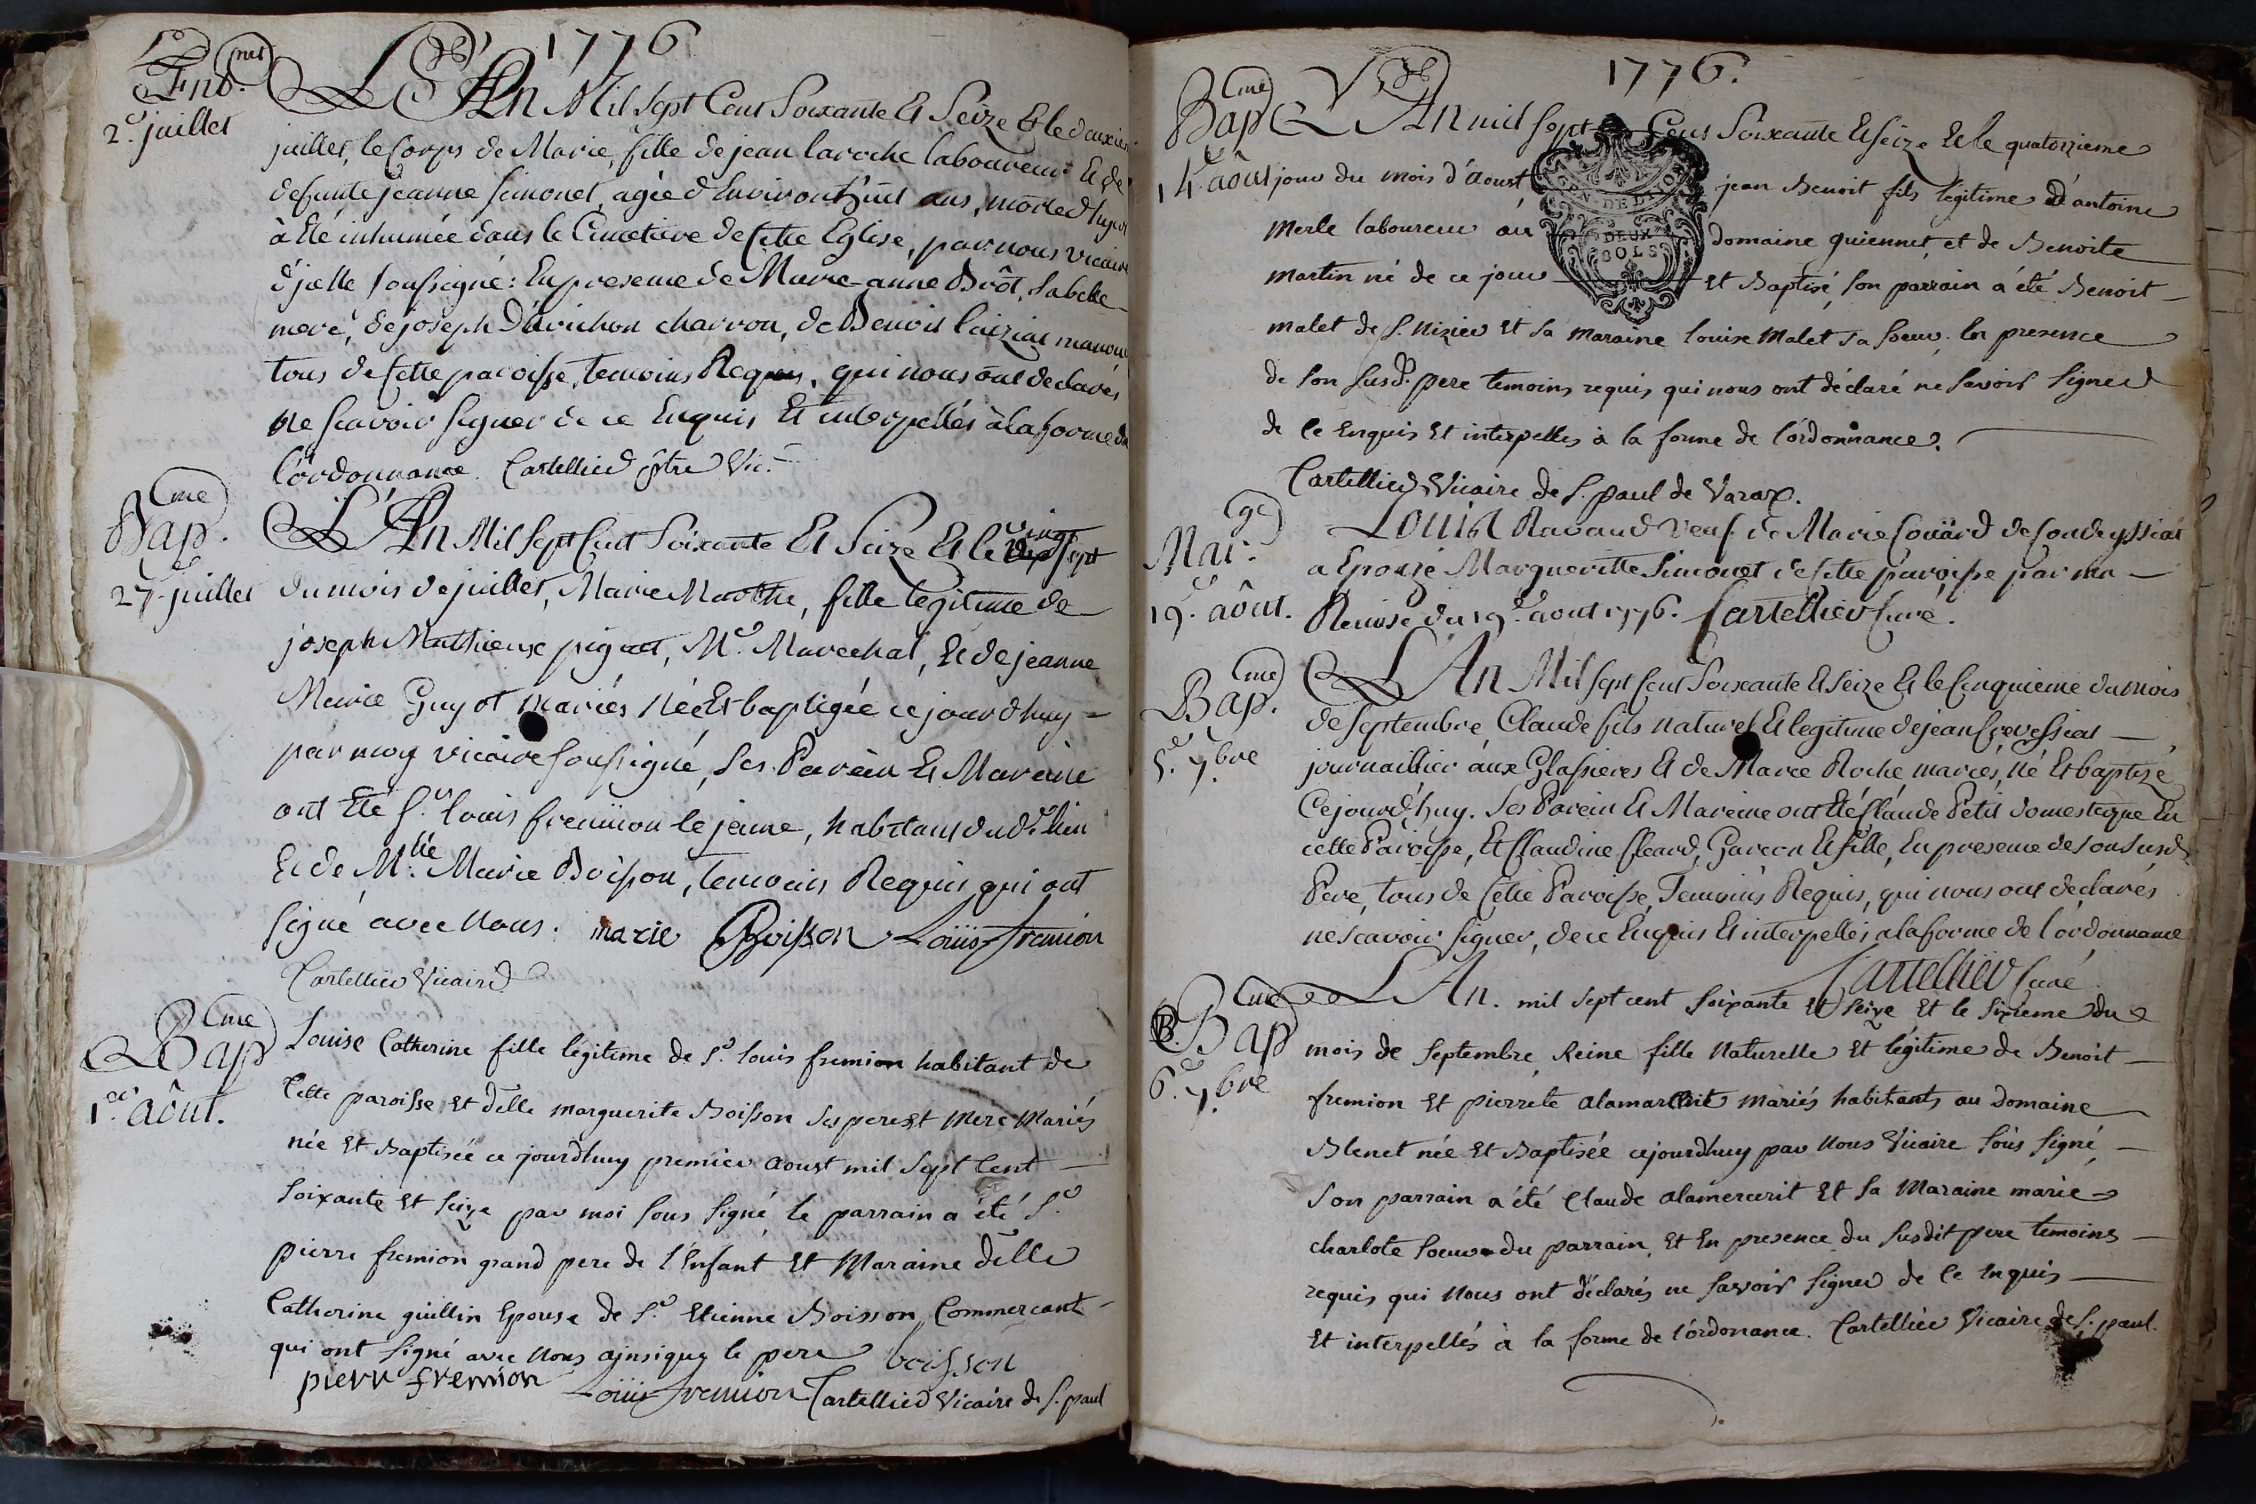 1776
Ent.nes
2.e juillet
L'An Mil Sept Cent Soixante Et Seize Et le deuxiem
juillet, le Corps de Marie, fille de jean laroche laboureur Et de
defunte jeanne Simonet, agée d'Environ huit ans, morte d'hyer
à Eté inhumée dans le Cimetiere de Cette Eglise, par nous vicaire
d'jcelle soussigné: En presence de Marie anne Brôt, sa belle
mere, de joseph Davichon charron, de Benoit manou
tous de Cette paroisse, temoins Requis, qui nous ônt declarés
Ne scavoir signer de ce Enquis Et interpellés à la forme de
l'ordonnance. Cartellier ptre Vic.
Bap.me
27.e juillet
L'An Mil Sept Cent Soixante Et Seize Et le vingt sept
du mois de juillet, Marie Marthe, fille legitime de
joseph Mathieux pignet, M.e Marechal, Et de jeanne
Marie Guyot mariés Née Et baptisée ce jourd'huy
par moy vicaire soussigné, Ses Parein Et Mareine
ont Eté S.r louis fremion le jeune, habitant du d.t lieu
Et de M.lle Marie Boisson, temoins Requis qui ont
signé avec Nous. marie Boisson Loüis fremion
Cartellier Vicaire
Bap.me
1.er aôut.
Louise Catherine fille légitime de S.r louis fremion habitant de
Cette paroisse et delle marguerite Boisson ses pere et mere Mariés
née et Baptisée ce jourdhuy premier aoust mil sept Cent
soixante et seize par moi sous signé le parrain a été S.r
pierre fremion grand pere de l'Enfant et Maraine delle
Catherine guillin Epouse de S.r Etienne Boisson Commercant
qui ont signé avec nous ainsique le pere boisson
pierr fremion Loüis fremion Cartellier Vicaire de S. paul
1776.
Bap.me
14.e aôut
L'An mil sept Cent Soixante Et seize et le quatorzieme
GEN. DE DIJON
DEUX
SOLS
jour du mois d'aoust jean Benoit fils legitime d'antoine
Merle laboureur au domaine quiennet et de Benoite
Martin né de ce jour et Baptisé, son parrain à été Benoit
malet de S. Nizier et sa maraine louise Malet sa soeur. En presence
de son susd. pere temoins requis qui nous ont déclaré ne savoir signer
de ce Enquis et interpelles à la forme de l'órdonnance.
Cartellier Vicaire de S. paul de Varax.
Mar.ge
19.e aôut.
Louis Ravaud veuf de Marie Coüard de Condeyssiat
a Epouzé Margueritte Simonet de Cette paroisse par ma
Remise du 19.e aout 1776. Cartellier Curé.
Bap.me
5.e 7.bre
L'An Mil Sept Cent Soixante Et Seize Et le Cinquieme du mois
de septembre, Claude fils naturel Et legitime de jean
journaillier aux Glassieres Et de Marie Roche mariés, Né Et baptizé
Cejourd'huy. Ses Parein Et Mareine ont Eté Claude Petit domestique En
cette Paroisse, Et Claudine Garcon Et fille, En presence de son susd.
Pere, tous de Cette Paroisse, Temoins Requis, qui nous ont declarés
ne scavoir signer, de ce Enquis Et interpellés a la forme de l'ordonnance
Cartellier Curé
B. Bap.me
6.e 7.bre
L'An. mil sept cent soixante et seize et le sixieme du
mois de septembre, Reine fille Naturelle et légitime de Benoit
fremion et pierrete mariés habitants au Domaine
Blenet née et Baptisée cejourdhuy par nous Vicaire sous signé
son parrain a été Claude et sa Maraine marie
charlote soeur du parrain, et En presence du susdit pere temoins
requis qui nous ont déclarés ne savoir signer de ce Enquis
et interpellés à la forme de l'órdonance. Cartellier Vicaire de S. paul.